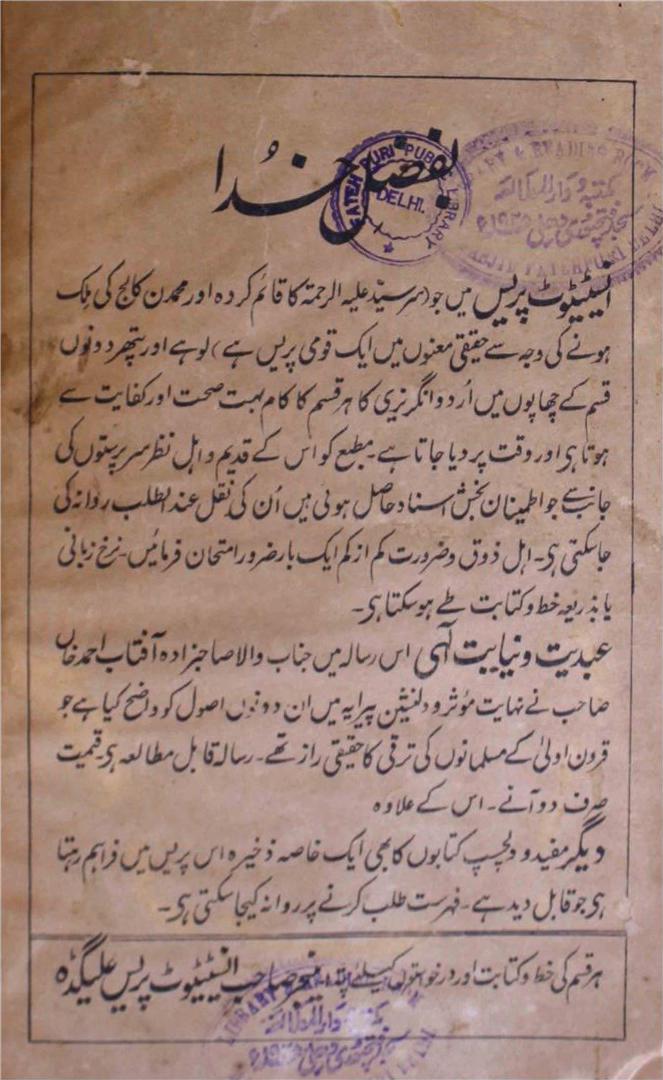 بفضل خدا
FATEHPURI PUBLIC LIBRARY
DELHI.
& READING ROOM
انسٹیٹیوٹ پریس میں جو (سرسیّد علیہ الرحمۃ کا قائم کردہ اور محمدن کالج کی مِلک
ہونے کی وجہ سے حقیقی معنوں میں ایک قومی پریس ہے) لوہے اور پتھر دونوں
قسم کے چھاپوں میں اُردو انگریزی کا ہر قسم کا کام بہت صحت اور کفایت سے
ہوتا ہی اور وقت پر دیا جاتا ہے۔ مطبع کو اس کے قدیم و اہل نظر سرپرستوں کی
جانب سے جو اطمینان بخش اسناد حاصل ہوئی ہیں اُن کی نقل عند الطلب روانہ کی
جاسکتی ہی۔ اہل ذوق و ضرورت کم از کم ایک بار ضرور امتحان فرمائیں۔ نرخ زبانی
یا بذریعہ خط و کتابت طے ہوسکتا ہی۔
عبدیت و نیابت آلٰہی اس رسالہ میں جناب والا صاحبزادہ آفتاب احمد خاں
صاحب نے نہایت مؤثر و دلنشین پیرایہ میں ان دونوں اصول کو واضح کیا ہے جو
قرون اولیٰ کے مسلمانوں کی ترقی کا حقیقی راز تھے۔ رسالہ قابل مطالعہ ہی۔ قیمت
صرف دو آنے۔ اس کے علاوہ
دیگر مفید و دلچسپ کتابوں کا بھی ایک خاصہ ذخیرہ اس پریس میں فراہم رہتا
ہی جو قابل دید ہے۔ فہرست طلب کرنے پر روانہ کیجا سکتی ہی۔
ہر قسم کی خط و کتابت اور درخواستوں کیلئے پتہ۔ منیجر صاحب انسٹیٹیوٹ پریس علیگڈہ
LIBRARY